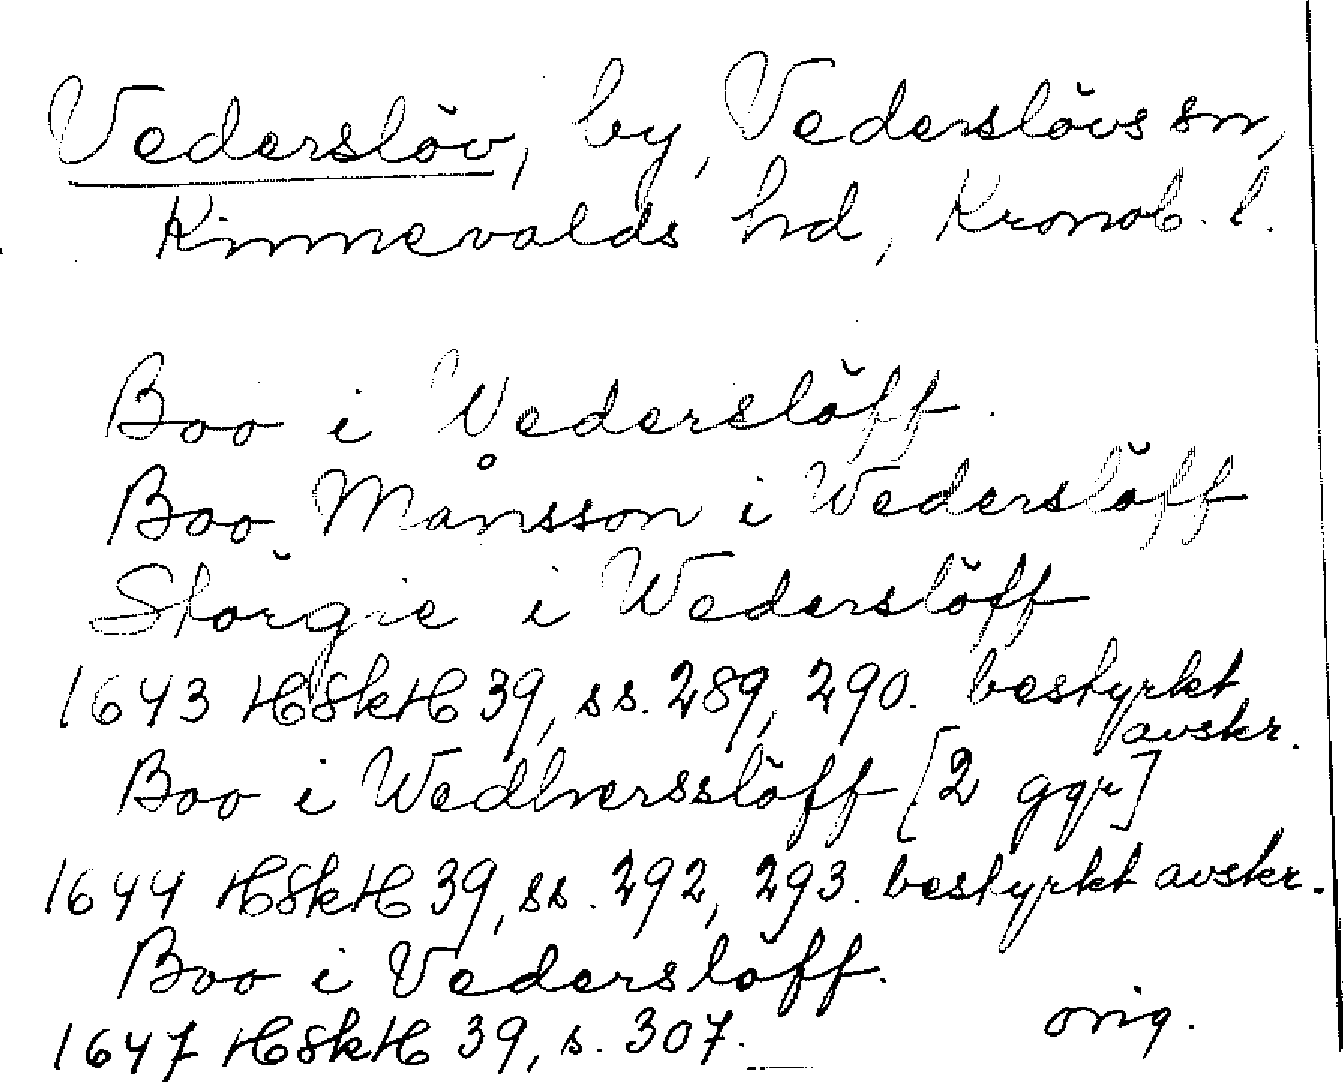 Vederslöv, by, Vederslövs sn,
Kinnevalds hd, Kronob. l.
Boo i Vederslöff.
Boo Månsson i Wederslöff
Störgie i Wederslöff
1643 HSkH 39, ss. 289, 290. bestyrkt avskr.
Boo i Wedhersslöff [2 ggr]
1644 HSkH 39, ss. 292, 293. bestyrkt avskr.
Boo i Vederslöff.
1647 HSkH 39, s. 307. orig.